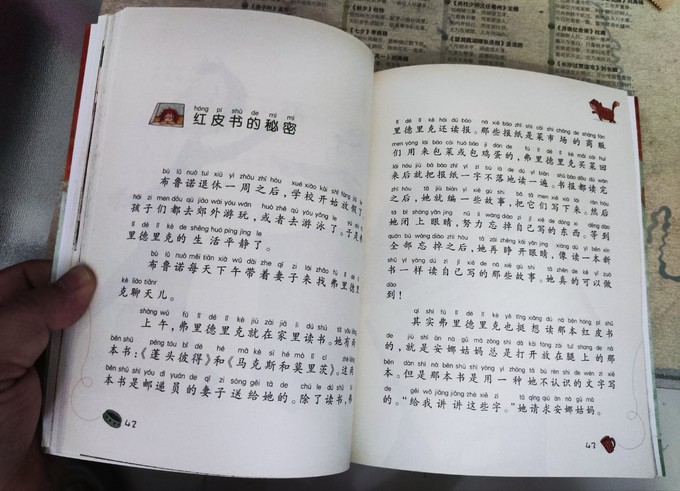 hóng pí shū de mì mì
红皮书的秘密
bù lǔ nuò tuì xiū yì zhōu zhī hòu xué xiào kāi shǐ fàng jià le
布鲁诺退休一周之后，学校开始放假了
hái zi men dōu qù jiāo wài yóu wán huò zhě qù yóu yǒng le
孩子们都去郊外游玩，或者去游泳了。于是弗
lǐ dé lǐ kè de shēng huó píng jìng le
里德里克的生活平静了。
bù lǔ nuò měi tiān xià wǔ dài zhe qī zi lái zhǎo fú lǐ dé lǐ
布鲁诺每天下午带着妻子来找弗里德里
kè liáo tiānr
克聊天儿。
shàng wǔ fú lǐ dé lǐ kè jiù zài jiā lǐ dú shū tā yǒu liǎng
上午，弗里德里克就在家里读书。她有两
běn shū péng tóu bǐ dé hé mǎ kè sī hé mò lǐ cí zhè liǎng
本书：《蓬头彼得》和《马克斯和莫里茨》。这两
běn shū shì yóu dì yuán de qī zi sòng gěi tā de chú le dú shū fú
本书是邮递员的妻子送给她的。除了读书，弗
42
lǐ dé lǐ kè hái dú bào nà xiē bào zhǐ shì cài shì chǎng de shāng fàn
里德里克还读报。那些报纸是菜市场的商贩
men yòng lái bāo cài huò bāo jī dàn de fú lǐ dé lǐ kè mǎi cài huí
们用来包菜或包鸡蛋的，弗里德里克买菜回
lái hòu jiù bǎ bào zhǐ yí zì bú là de dú yí biàn shū bào dōu dú wán
来后就把报纸一字不落地读一遍。书报都读完
zhī hòu tā jiù biān yì xiē gù shi bǎ tā men xiě xià lái rán hòu
之后，她就编一些故事，把它们写下来。然后
tā bì shàng yǎn jīng nǔ lì wàng diào zì jǐ xiě de dōng xi děng dào
她闭上眼睛，努力忘掉自己写的东西。等到
quán bù wàng diào zhī hòu tā zài zhēng kāi yǎn jīng xiàng dú yì běn xīn
全部忘掉之后，她再睁开眼睛，像读一本新
shū yí yàng dú zì jǐ xiě de nà xiē gù shi tā zhēn de kě yǐ zuò
书一样读自己写的那些故事。她真的可以做
dào
到！
qí shí fú lǐ dé lǐ kè yě tǐng xiǎng dú nà běn hóng pí shū
其实弗里德里克也挺想读那本红皮书
de jiù shì ān nà gū mā zǒng shì dǎ kāi fàng zài tuǐ shàng de nà
的，就是安娜姑妈总是打开放在腿上的那
běn dàn shì nà běn shū shì yòng yì zhǒng tā bú rèn shi de wén zì xiě
本。但是那本书是用一种她不认识的文字写
de gěi wǒ jiǎng jiang zhè xiē zì tā qǐng qiú ān nà gū mā
的。“给我讲讲这些字。”她请求安娜姑妈。
43